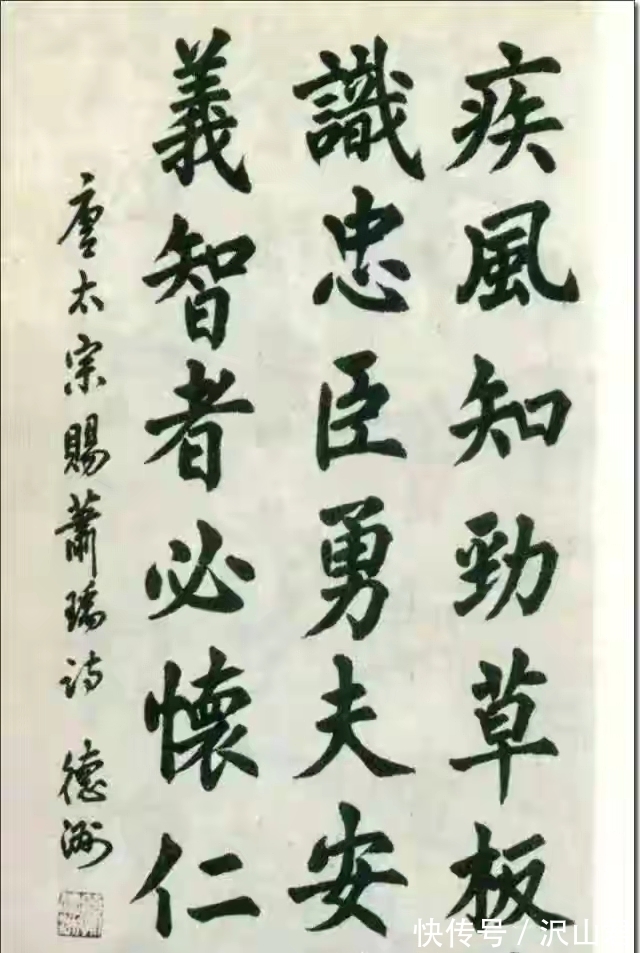 疾風知勁草板
識忠臣勇夫安
義智者必懷仁
唐太宗賜蕭瑀詩 德洲
快传号/沢山